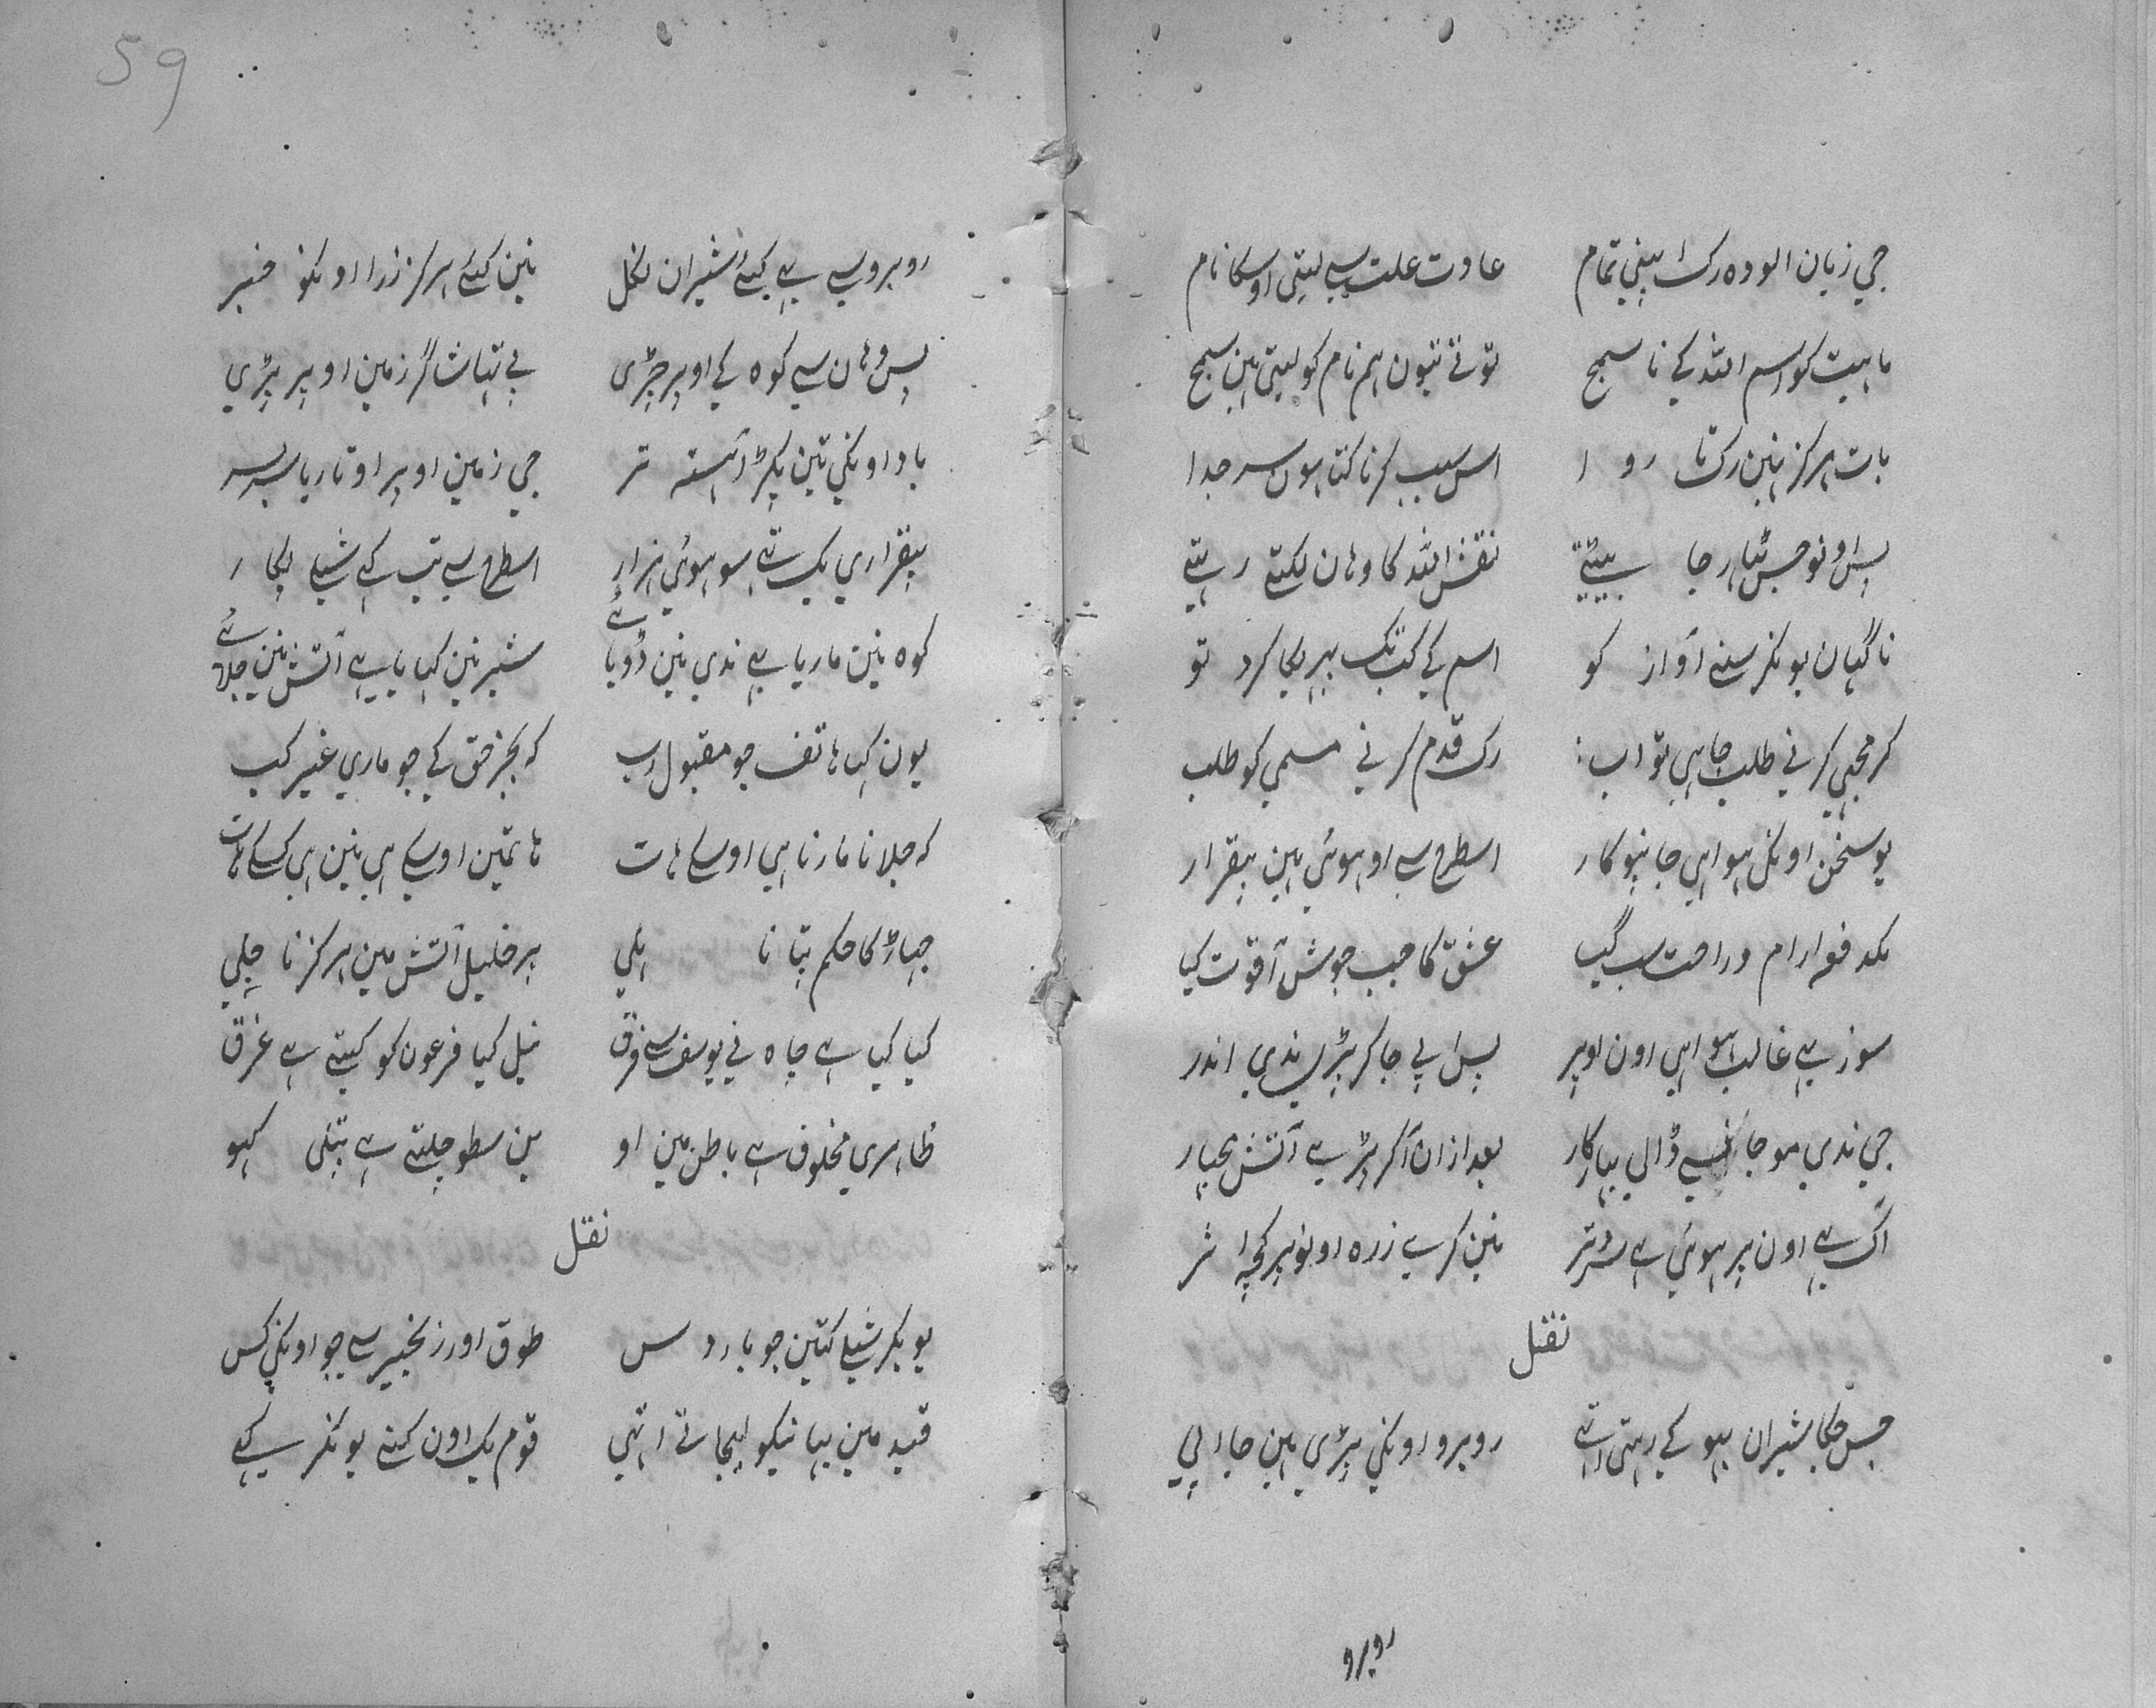 جي زبان الوده رک اپني تمام عادت علت سے ليتی اوسکا نام
ماہيت کو اسم اللہ کے نا سمج توتے نيون ہم نام کو ليتی ہين سمج
بات ہرکز نين رکتا روا اس سبب کرنا کتا ہون سر جدا
پس اونو جس ٹہار جا بيٹتے نقش اللہ کا وہان لکتے رہتے
ناگہان يو نکر سنے آواز کو اسم کے کب تک پہر يگا کرد تو
کر مجہی کرنے طلب چاہی تو اب رک قدم کرنے مسمي کو طلب
يو سخن اونکن ہوا ہی جانپو کار اسطرح سے او ہوئي ہين بيقرار
يکدفعہ ارام و راحت سب گيا عشق کا جب جوش آ قوت کيا
سوز سے غالب ہوا ہی اون اوپر پس اپے جا کر پڑے ندي اندر
جي ندي موجا سے ڈالي بہار کار بعد ازان آکر پڑے آتش بچار
اگ سے اون پر ہوئي ہے سردتر نين کرے زره اونو پر کچہ اثر
نقل
جس جگا شيران ببو کے رہتی اتہے روبرو اونکي پڑي ہين جا اپي
روبرو
59
روبرو سے ہے کيئے شيران نکل نين کيئے ہرکز زرا اونکو خبر
پس وہان سے کوه کے اوپر چڑی بے تہاشا گر زمين اوپر پڑي
باد اونکي تين پکڑ آہستہ تر جي زمين اوپر اوتاريا سربسر
بيقراري يک تہے سو ہوئي ہزار اسطرح سے تب کہے شبلے پکار
کوه نين ماريا ہے ندي نين ڈوبائے شير نين کہايا ہے آتش نين جلائے
يون کہا ہاتف جو مقبول رب کہ بجز حق کے جو ماري غير کب
کہ جلانا مارنا ہی اوسکے ہات ہاتمين اوسکے ہی نين ہی کسکے ہات
جہاڑ کا حکم بتا نا ہلي پر خليل آتش مين ہرکز نا جلي
کيا کيا ہے چاه نے يوسف سے فرق نيل کيا فرعون کو کيتے ہے غرق
ظاہري مخلوق ہے باطن مين او ين سطو چلتے ہے پتلی کہو
نقل
يو بکر شبلے کتين جو بارد س طوق اور زنجير سے جو اونکي کس
قيد مين بہانيکو ليجاتے اتہي قوم يک اون کہنے يو نکر کہے